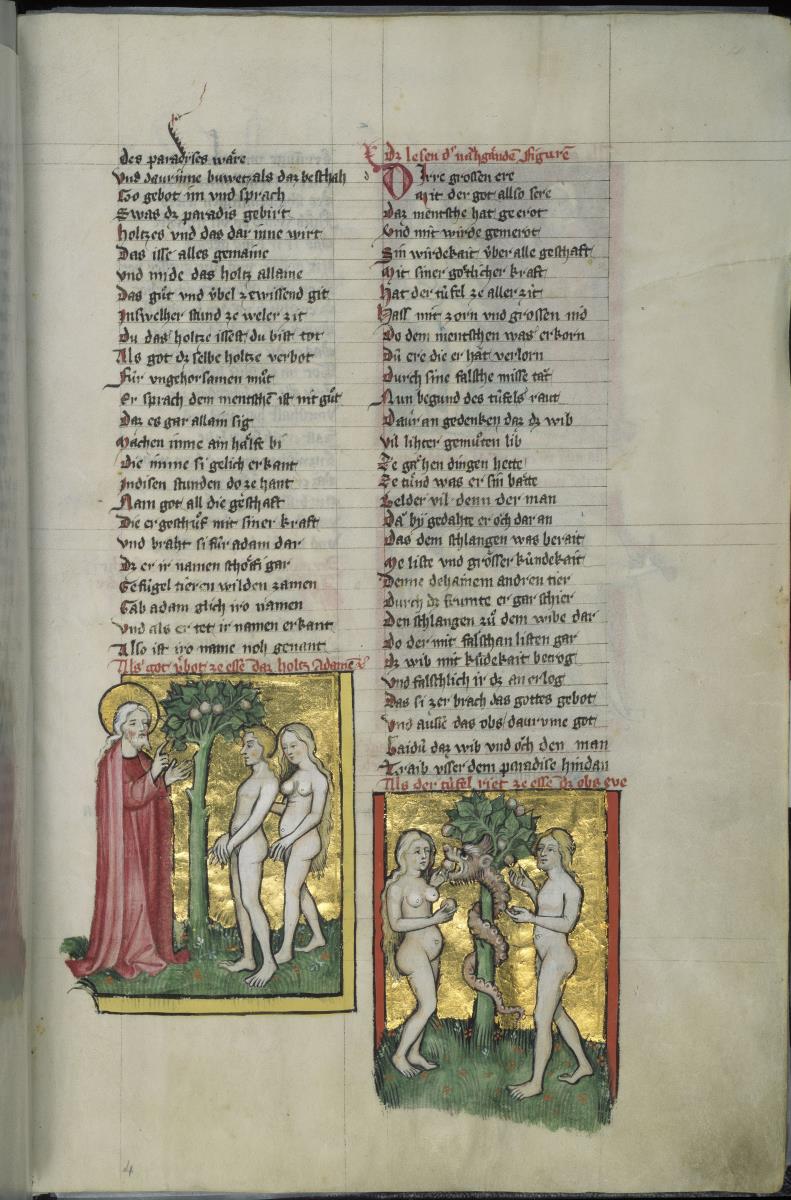 des paradyses wäre
Vnd daurinne buwet als daz beschah
So gebot im vnd sprach
Swas dz paradis gebirt
Holtzes vnd das dar inne wirt
Das isse alles gemaine
Vnd mide das holtz allaine
Das gůt vnd v̇bel ze wissend git
In swelher stund ze weler zit
Du das holtze issest du bist tot
Als got dz selbe holtze verbot
Für vngehorsamen můt
Er sprach dem mentschē ist nit gůt
Daz es gar allain sig
Machen imme ain hälfe bi
Die imme si gelich erkant
In disen stunden do ze hant
Nam got all die geschaft
Die er geschůf mit siner kraft
Vnd braht si für adam dar
Dz er ir namen schöffi gar
Gefügel tieren wilden zamen
Gab adam glich iro namen
Vnd als er tet ir namen erkant
Also ist iro name noh genant
Als got v̇bot ze esse daz holtz Adame
Dz lesen dˢ nahgändē figurē
Dirre grossen ere
Mit der got allso sere
Daz mentsche hat geerot
Vnd mit wirde gemerot
Sin wirdekait v̇ber alle geschaft
Mit siner götlicher kraft
Hat der tüfel ze aller zit
Hass mit zorn vnd grossen nid
Do dem mentschen was erkorn
Dü ere die er hät verlorn
Durch sine falsche misse tät
Nun begund des tüfels raut
Daur an gedenken daz dz wib
Vil lihter gemůten lib
Ze gähen dingen hette
Ze tůnd was er sin bätte
Belder vil denn der man
Da bÿ gedahte er och dar an
Das dem schlangen was berait
Me liste vnd grösser kündekait
Denne dehainem andren tier
Durch dz frumte er gar schier
Den schlangen zů dem wibe dar
Do der mit falschan listen gar
Dz wib mit kündekait betrog
Vnd falschlich ir dz an erlog
Das si zer brach das gottes gebot
Vnd ausse das obs daurvme got
Baidü daz wib vnd och den man
Traib vsser dem paradise hindan
Als der tüfel riet ze esse dz obs eve
4